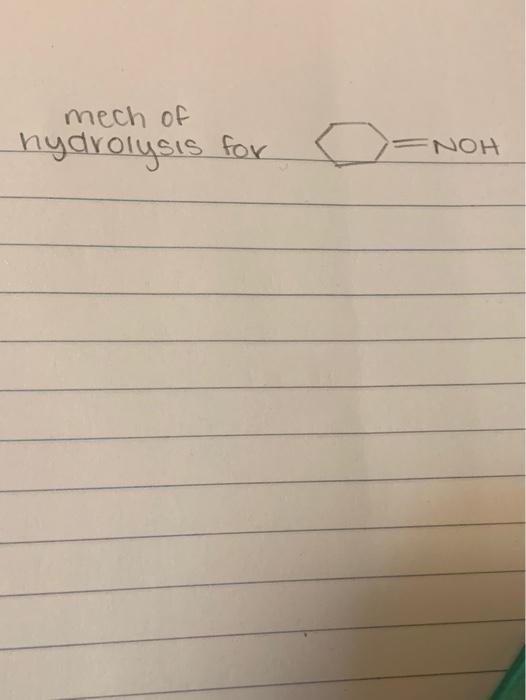 mech of
hydrolysis for =NOH